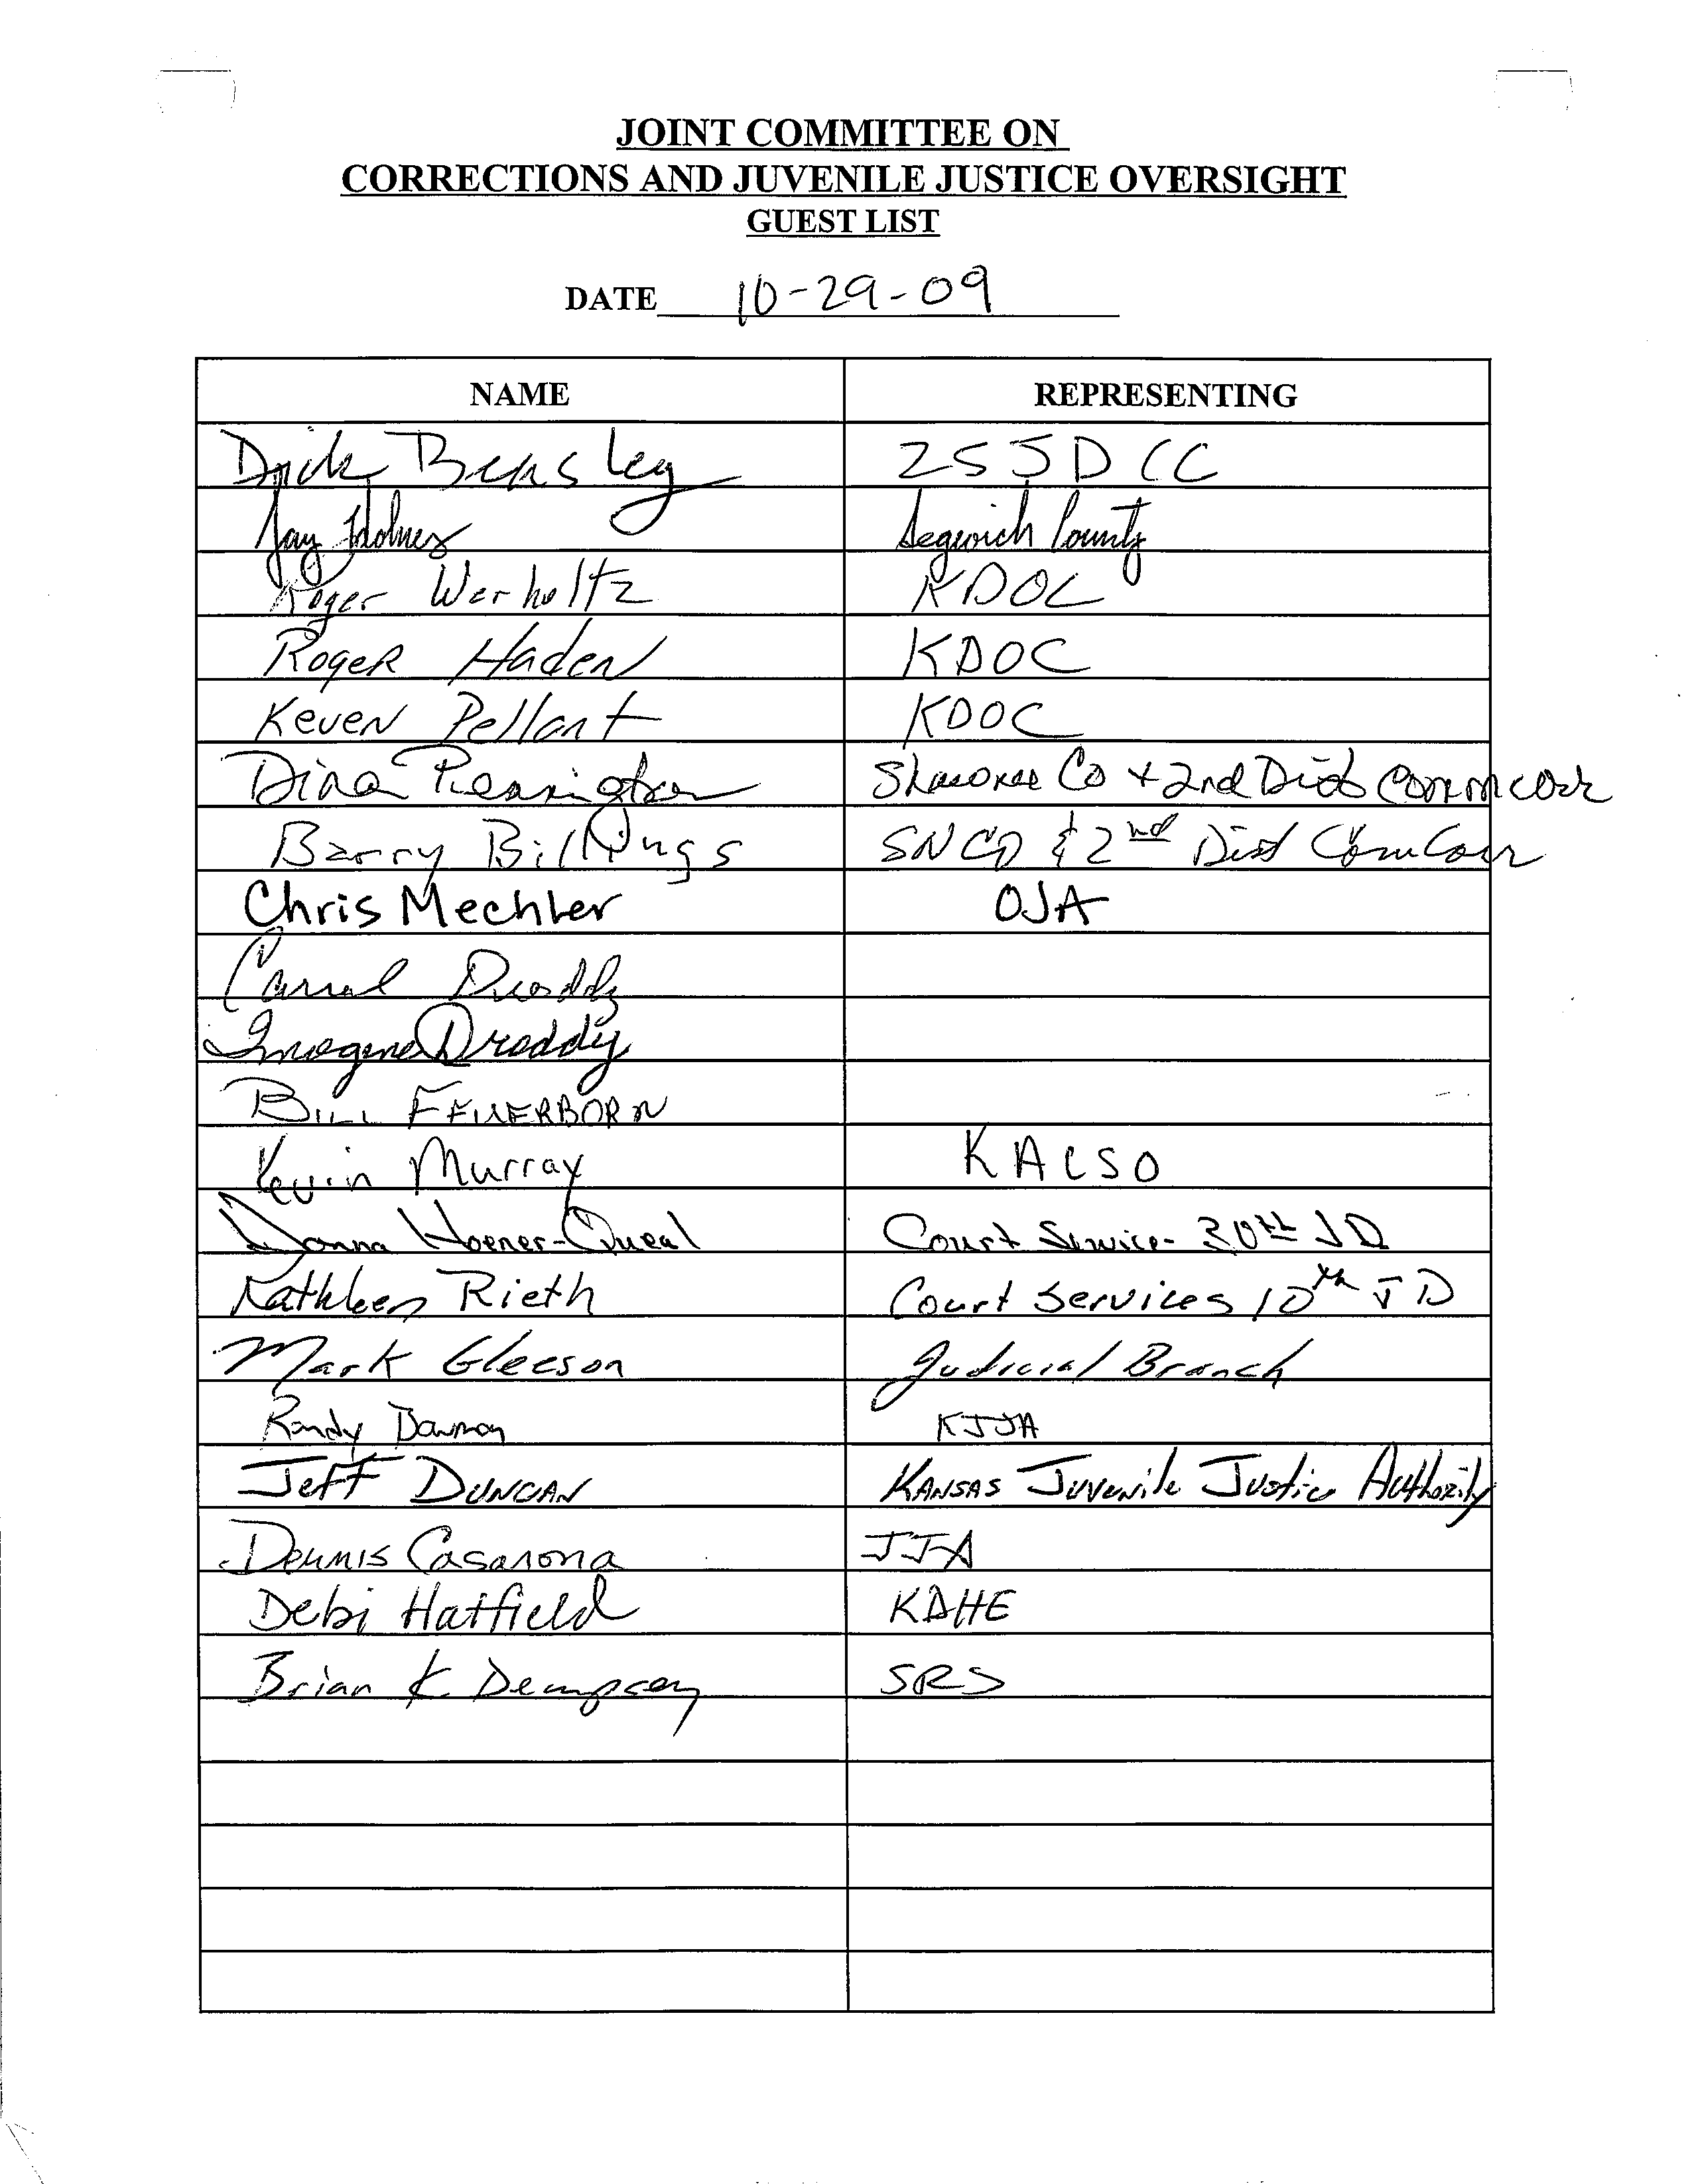 JOINT COMMITTEE ON
CORRECTIONS AND JUVENILE JUSTICE OVERSIGHT
GUEST LIST
DATE 10-29-09
NAME REPRESENTING
Dick Beasley 25 JD CC
Jay Holmes Segwich County
Roger Werholtz KDOC
Roger Haden KDOC
Keven Pellant KDOC
Dina Pennington Shawnee Co + 2nd Dist Comm corr
Barry Billings SNCO & 2nd Dist Com Corr
Chris Mechler OJA
Carrol Droddy
Imogene Droddy
BILL FEUERBORN
Kevin Murray KACSO
Donna Hoener-Queal Court Service- 30th JD
Kathleen Rieth Court Services 10th JD
Mark Gleeson Judicial Branch
Randy Bowman KJJA
Jeff Duncan Kansas Juvenile Justice Authority
Dennis Casarona JJA
Debi Hatfield KDHE
Brian K. Dempsey SRS